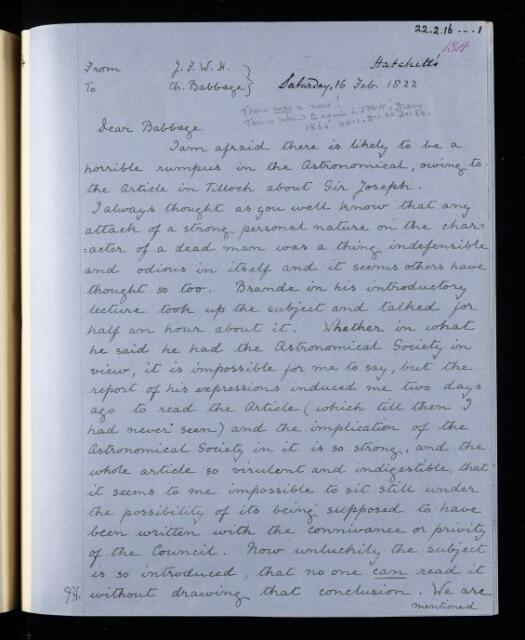 22.2.16 --- 1
From J. F. W. H.
To Ch. Babbage }
Hatchetts
Saturday, 16 Feb. 1822
There was a row!
Dear Babbage
I am afraid there is likely to be a
horrible rumpus in the Astronomical, owing to
the Article in Tilloch about Sir Joseph.
I always thought as you well know that any
attack of a strong personal nature on the char=
=acter of a dead man was a thing indefensible
and odious in itself and it seems others have
thought so too. Brande in his introductory
lecture took up the subject and talked for
half an hour about it. Whether in what
he said he had the Astronomical Society in
view, it is impossible for me to say, but the
report of his expressions induced me two days
ago to read the Article (which till then I
had never seen) and the implication of the
Astronomical Society in it is so strong, and the
whole article so virulent and indigestible, that
it seems to me impossible to sit still under
the possibility of its being supposed to have
been written with the connivance or privity
of the Council. Now unluckily the subject
is so introduced, that no one can read it
without drawing that conclusion. We are
mentioned